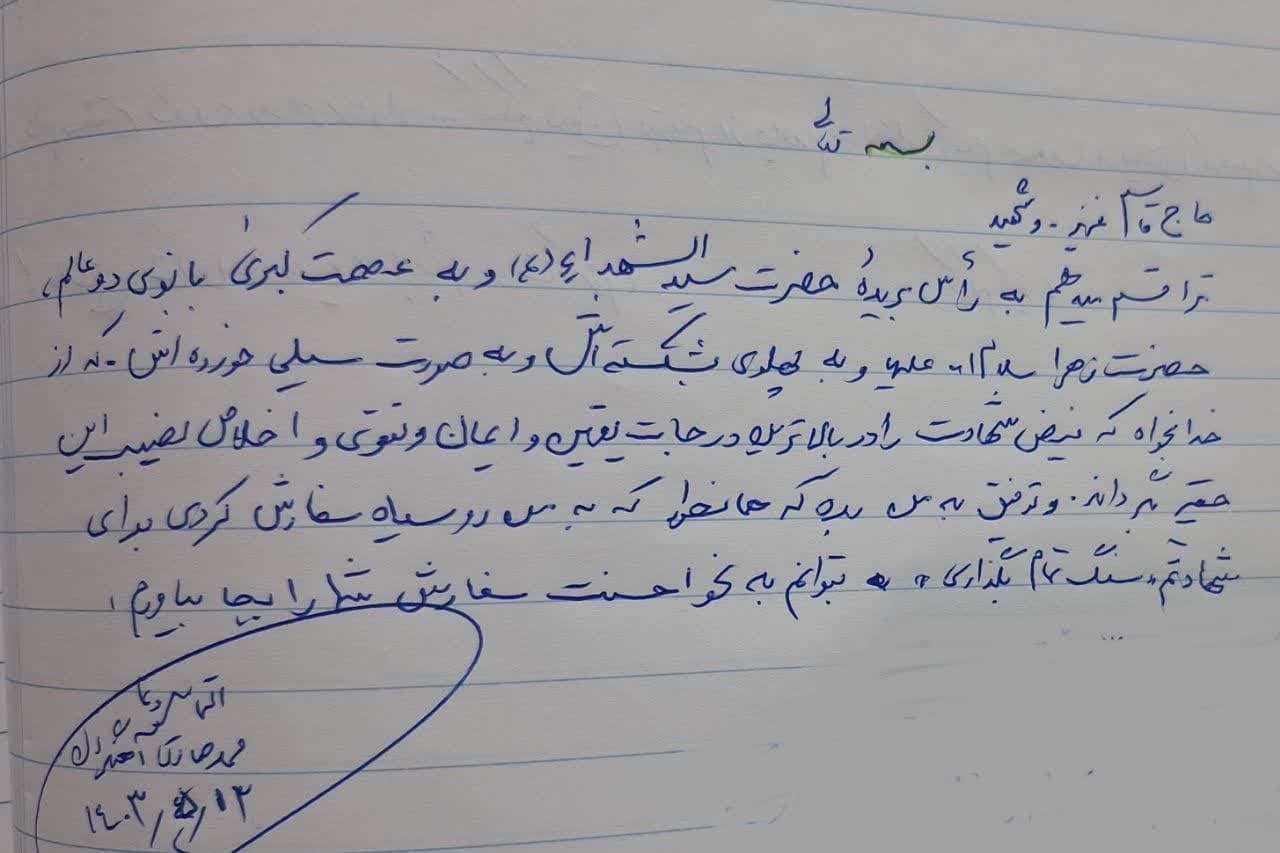 بسمه تعالی
حاج قاسم عزیز - و شهید
ترا قسم میدهم به رأس بریدهٔ حضرت سید الشهداء (ع) و به عصمت کبریٰ بانوی دو عالم،
حضرت زهرا سلام ا... علیها و به پهلوی شکسته‌اش و به صورت سیلی خورده‌اش - که از
خدا بخواه که فیض شهادت را در بالاترین درجات یقین و ایمان و تقوی و اخلاص نصیب این
حقیر گرداند. و توفیق به من بده که همانطور که به من رو سیاه سفارش کردی برای
شهادتم "سنگ تمام بگذاری" بتوانم به نحو احسنت سفارش شما را بجا بیاورم.
التماس دعا
محمدرضا
۱۴۰۳/ /۱۲